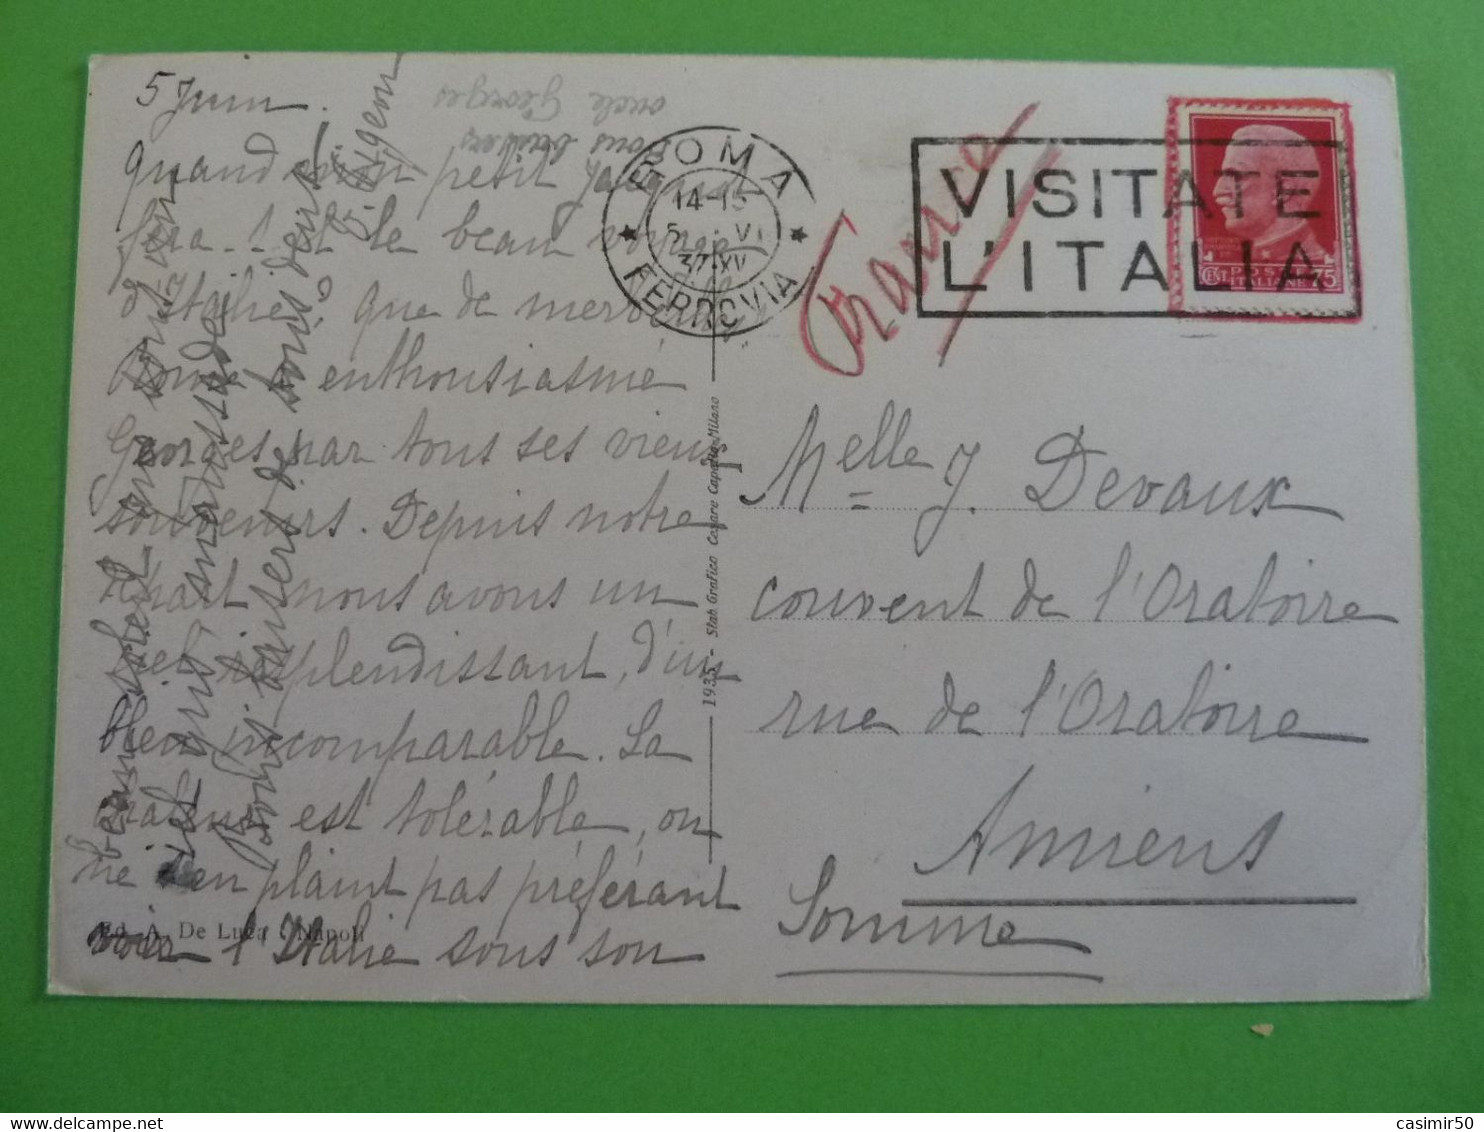 5 Juin.
quand mon petit
fera-t-il le beau voyage
d'Italie? que de merveilles
Rome enthousiasme
Georges par tous ses vieux
souvenirs. Depuis notre
départ nous avons un
ciel resplendissant, d'un
bleu incomparable. La
chaleur est tolérable, on
ne s'en plaint pas préférant
voir l'Italie sous son
beau soleil
que maussade
Bons baisers de nous deux
oncle Georges
ROMA
FERROVIA
14-15
5 VI
37 XV
VISITATE
L'ITALIA
CENT. POSTE ITALIANE 75
France
Melle J. Devaux
couvent de l'Oratoire
rue de l'Oratoire
Amiens
Somme
1935 - Stab Grafico Cesare Capello-Milano
Ed. A. De Luca - Napoli
casimir50